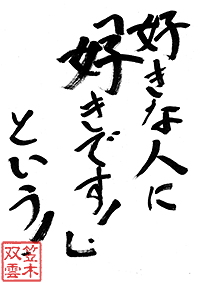 好きな人に
「好きです!」
という!
笠木
双雲